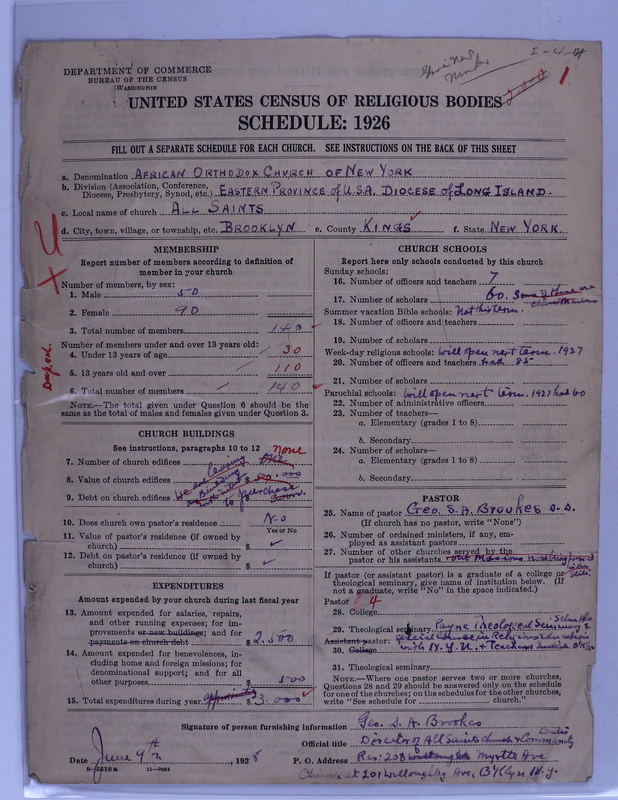 I-4-4
Give New
Number
1
DEPARTMENT OF COMMERCE
BUREAU OF THE CENSUS
WASHINGTON
UNITED STATES CENSUS OF RELIGIOUS BODIES
SCHEDULE: 1926
FILL OUT A SEPARATE SCHEDULE FOR EACH CHURCH. SEE INSTRUCTIONS ON THE BACK OF THIS SHEET
a. Denomination AFRICAN ORTHODOX CHURCH OF NEW YORK
b. Division (Association, Conference, Diocese, Presbytery, Synod, etc.) EASTERN PROVINCE of U.S.A. DIOCESE of LONG ISLAND.
c. Local name of church ALL SAINTS
d. City, town, village, or township, etc. BROOKLYN e. County KINGS f. State NEW YORK.
MEMBERSHIP
Report number of members according to definition of
member in your church
Number of members, by sex:
1. Male 50
2. Female 90
3. Total number of members 140
Number of members under and over 13 years old:
4. Under 13 years of age 30
5. 13 years old and over 110
6. Total number of members 140
NOTE.—The total given under Question 6 should be the
same as the total of males and females given under Question 3.
CHURCH BUILDINGS
See instructions, paragraphs 10 to 12
none
7. Number of church edifices one
8. Value of church edifices $
9. Debt on church edifices $
We are leasing
to purchase
10. Does church own pastor's residence No
Yes or No
11. Value of pastor's residence (if owned by
church) $
12. Debt on pastor's residence (if owned by
church) $
EXPENDITURES
Amount expended by your church during last fiscal year
13. Amount expended for salaries, repairs,
and other running expenses; for im-
provements or new buildings; and for
payments on church debt $ 2.500
14. Amount expended for benevolences,
including home and foreign missions; for
denominational support; and for all
other purposes $ 500
15. Total expenditures during year approximately $ 3.000
CHURCH SCHOOLS
Report here only schools conducted by this church
Sunday schools:
16. Number of officers and teachers 7
17. Number of scholars 60. Some of these are
Summer vacation Bible schools: Not this term.
18. Number of officers and teachers
19. Number of scholars
Week-day religious schools: will open next term. 1927
20. Number of officers and teachers had 85
21. Number of scholars
Parochial schools: will open next term. 1927 had 60
22. Number of administrative officers
23. Number of teachers—
a. Elementary (grades 1 to 8)
b. Secondary
24. Number of scholars—
a. Elementary (grades 1 to 8)
b. Secondary
PASTOR
25. Name of pastor Geo. S. A. Brookes D.D.
(If church has no pastor, write "None")
26. Number of ordained ministers, if any, em-
ployed as assistant pastors
27. Number of other churches served by the
pastor or his assistants
If pastor (or assistant pastor) is a graduate of a college or
theological seminary, give name of institution below. (If
not a graduate, write "No" in the space indicated.)
Pastor: 4
28. College
29. Theological seminary Payne Theological Seminary &
Assistant pastor: special course in
30. College with N.Y.U. & Teachers
31. Theological seminary
NOTE.—Where one pastor serves two or more churches,
Questions 28 and 29 should be answered only on the schedule
for one of the churches; on the schedules for the other churches,
write "See schedule for church."
Signature of person furnishing information Geo. S. A. Brookes
Official title Director of All Saints Church & Community Centre
Date June 9th, 1928 P. O. Address Res: 208 Myrtle Ave
8-5518a 11-9054
Church at 201 Willoughby Ave, B'klyn N.Y.